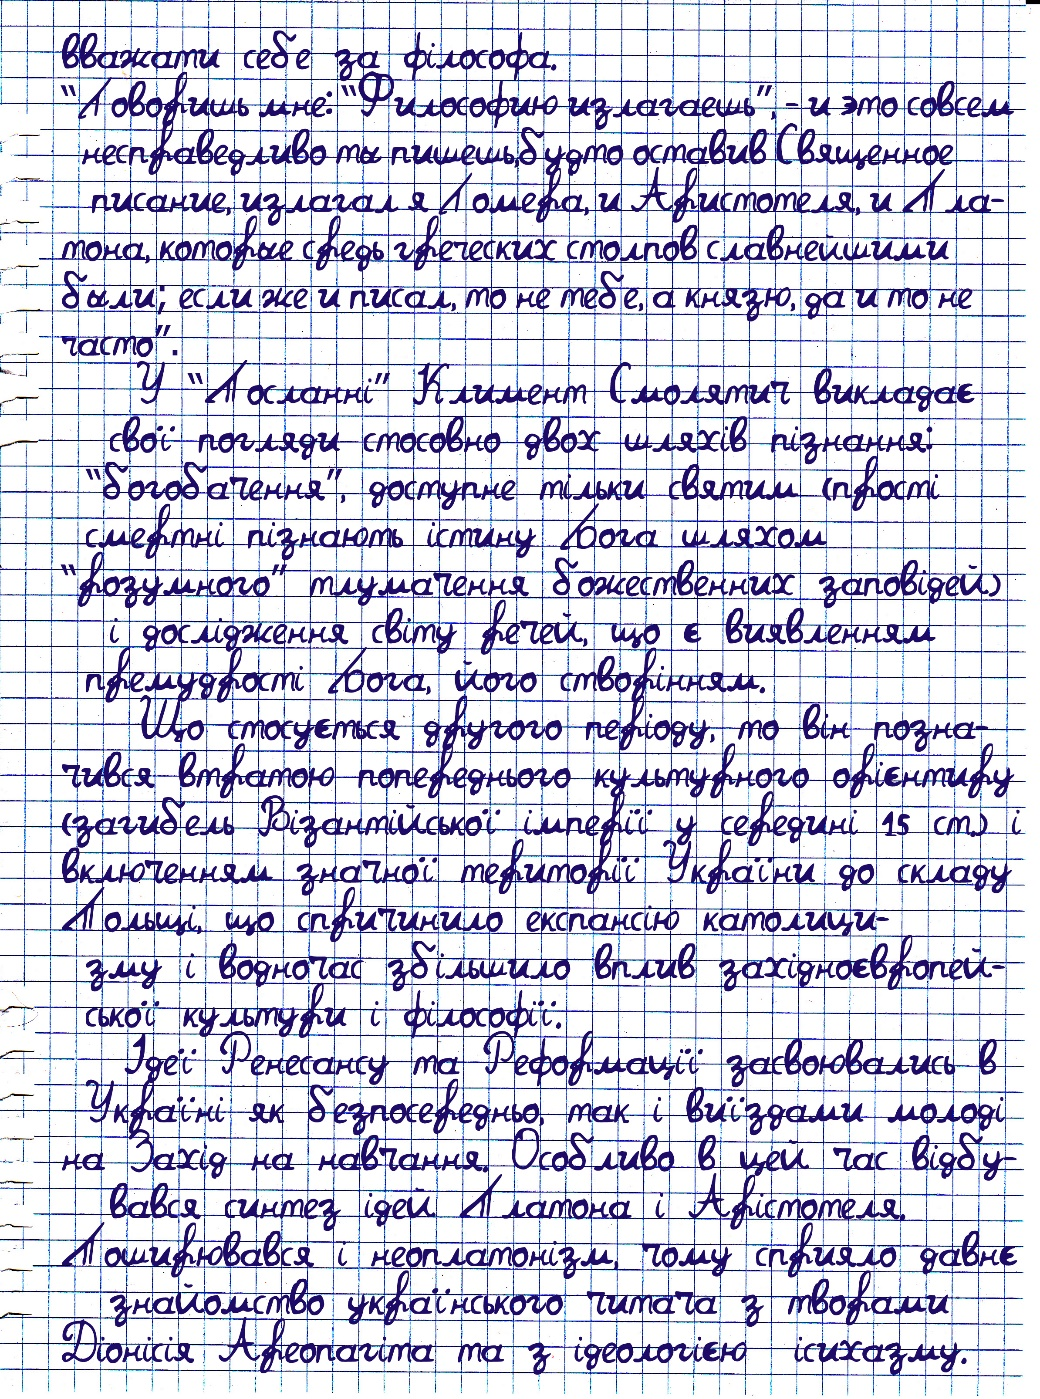 вважати себе за філософа.
"Говоришь мне: "Философию излагаешь", - и это совсем
несправедливо ты пишешь, будто оставив Священное
писание, излагал я Гомера, и Аристотеля, и Пла-
тона, которые средь греческих столпов славнейшими
были; если же и писал, то не тебе, а князю, да и то не
часто".
У "Посланні" Климент Смолятич викладає
свої погляди стосовно двох шляхів пізнання:
"богобачення", доступне тільки святим (прості
смертні пізнають істину Бога шляхом
"розумного" тлумачення божественних заповідей)
і дослідження світу речей, що є виявленням
премудрості Бога, його створінням.
Що стосується другого періоду, то він позна-
чився втратою попереднього культурного орієнтиру
(загибель Візантійської імперії у середині 15 ст.) і
включенням значної території України до складу
Польщі, що спричинило експансію католици-
зму і водночас збільшило вплив західноєвропей-
ської культури і філософії.
Ідеї Ренесансу та Реформації засвоювались в
Україні як безпосередньо, так і виїздами молоді
на Захід на навчання. Особливо в цей час відбу-
вався синтез ідей Платона і Арістотеля.
Поширювався і неоплатонізм, чому сприяло давнє
знайомство українського читача з творами
Діонісія Ареопагіта та з ідеологією ісихазму.